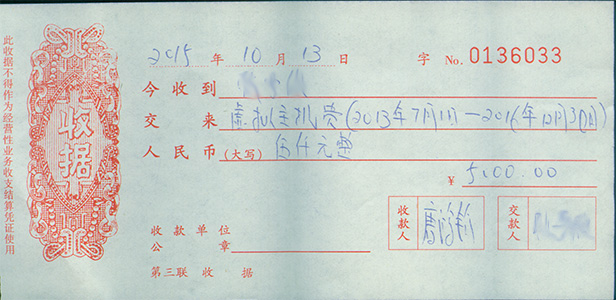 此收据不得作为经营性业务收支结算凭证使用
收据
2015 年 10 月 13 日 字 No. 0136033
今收到
交来 虚拟主机费(2013年7月1日—2016年12月30日)
人民币(大写) 伍仟元整
¥ 5000.00
收款单位公章
收款人
交款人
第三联 收据